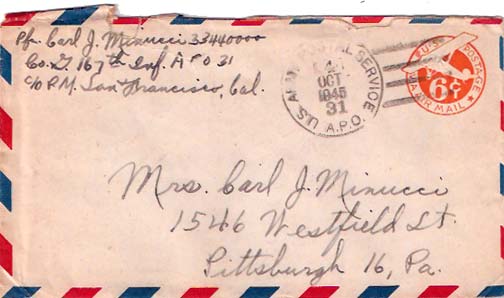 Pfc. Carl J. Minucci 33440000
Co. G 167th Inf. A P O 31
c/o P.M. San Francisco, Cal.
U.S. ARMY POSTAL SERVICE
OCT
1945
31
A.P.O.
U.S. POSTAGE
6¢
VIA AIR MAIL
Mrs. Carl J. Minucci
1546 Westfield St.
Pittsburgh 16, Pa.